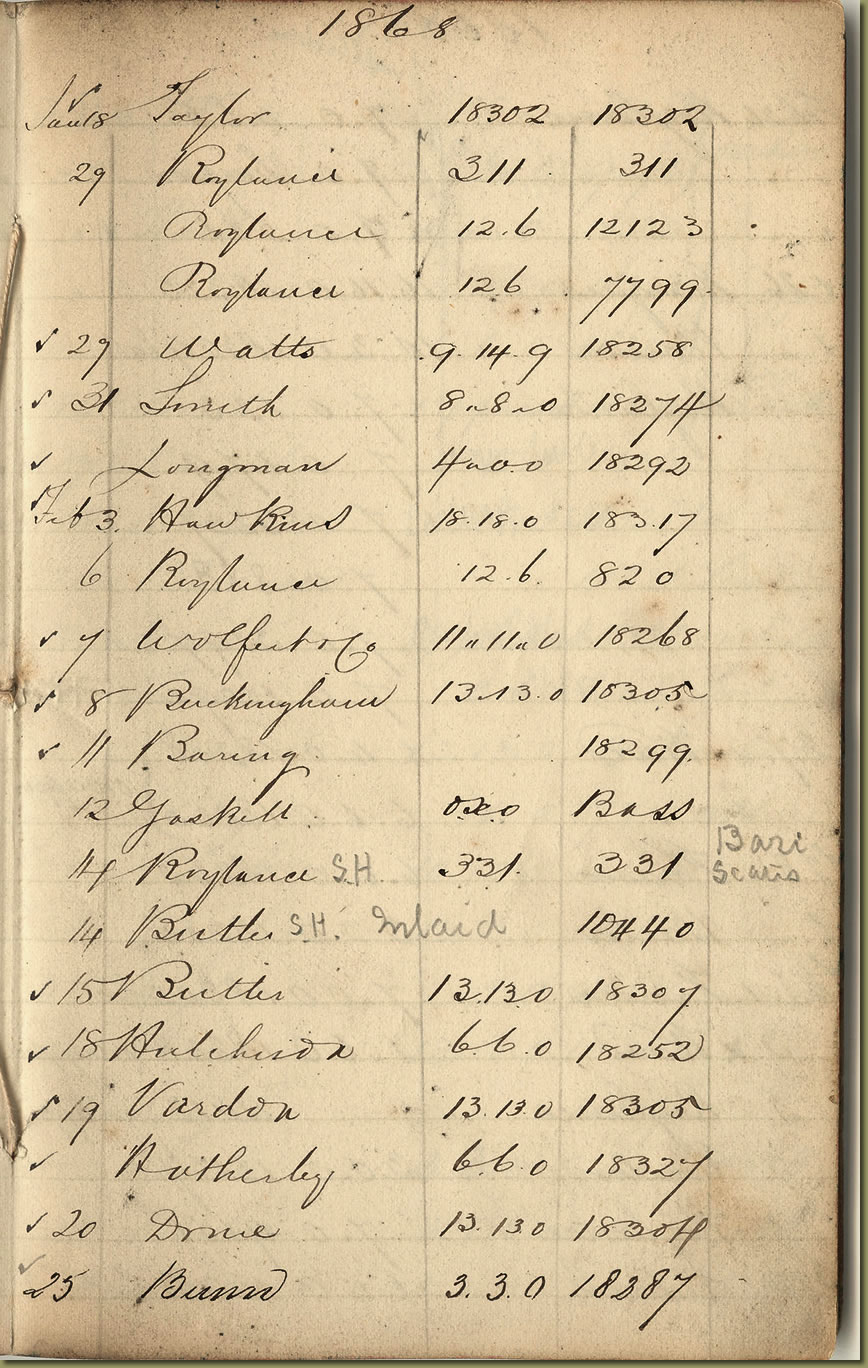 1868
Jan 18 Taylor 18302 18302
29 Roylance 311 311
Roylance 12.6 12123
Roylance 12 6 7799
✓ 29 Watts 9.14.9 18258
✓ 31 Smith 8"8"0 18274
✓ Longman 4"0.0 18292
✓ Feb 3. Hawkins 18.18.0 18317
6 Roylance 12.6. 820
✓ 7 Wolfert & Co 11"11"0 18268
✓ 8 Buckingham 13.13.0 18305
✓ 11 Baring 18299
12 Gaskell oxo Bass
14 Roylance S.H. 331. 331 Bari Scatis
14 Butler S.H. Inlaid 10440
✓ 15 Butler 13.13.0 18307
✓ 18 Hutchison 6.6.0 18252
✓ 19 Vardon 13.13.0 18305
✓ Hatherley 6.6.0 18327
✓ 20 13.13.0 18304
✓ 25 Bunn 3.3.0 18287